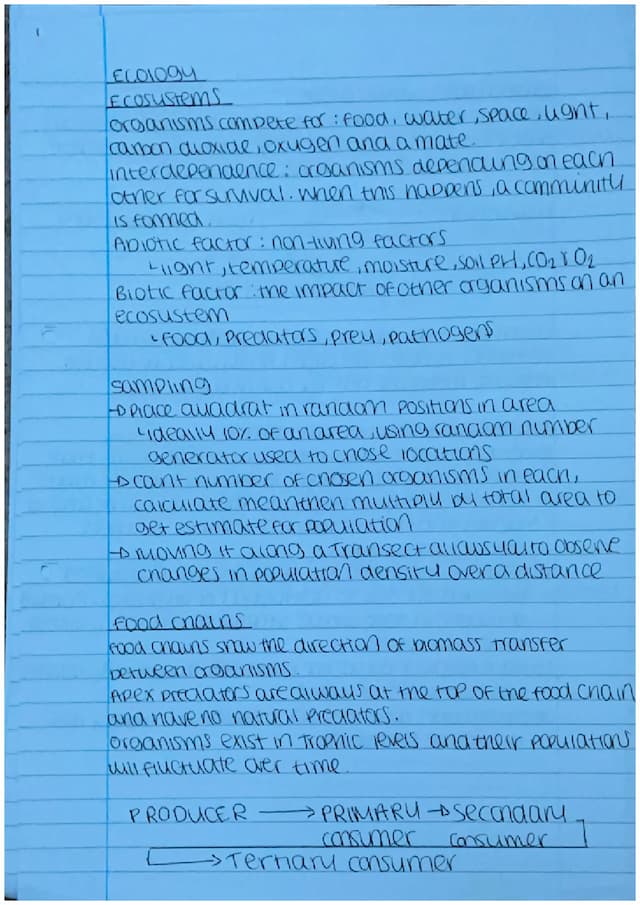 1
Ecology
Ecosystems
Organisms compete for : food, water, space, light,
carbon dioxide, oxygen and a mate.
Interdependence : organisms depending on each
other for survival. When this happens, a community
is formed.
Abiotic factor : non-living factors
↳ light, temperature, moisture, soil pH, CO₂ & O₂
Biotic factor : the impact of other organisms on an
ecosystem
↳ food, predators, prey, pathogens
Sampling
→ Place quadrat in random positions in area
↳ ideally 10% of an area, using random number
generator used to chose locations
→ count number of chosen organisms in each,
calculate mean then multiply by total area to
get estimate for population
→ moving it along a transect allows you to observe
changes in population density over a distance
Food chains
Food chains show the direction of biomass transfer
between organisms.
Apex predators are always at the top of the food chain
and have no natural predators.
Organisms exist in trophic levels and their populations
will fluctuate over time.
PRODUCER → PRIMARY → Secondary
consumer consumer
→ Tertiary consumer